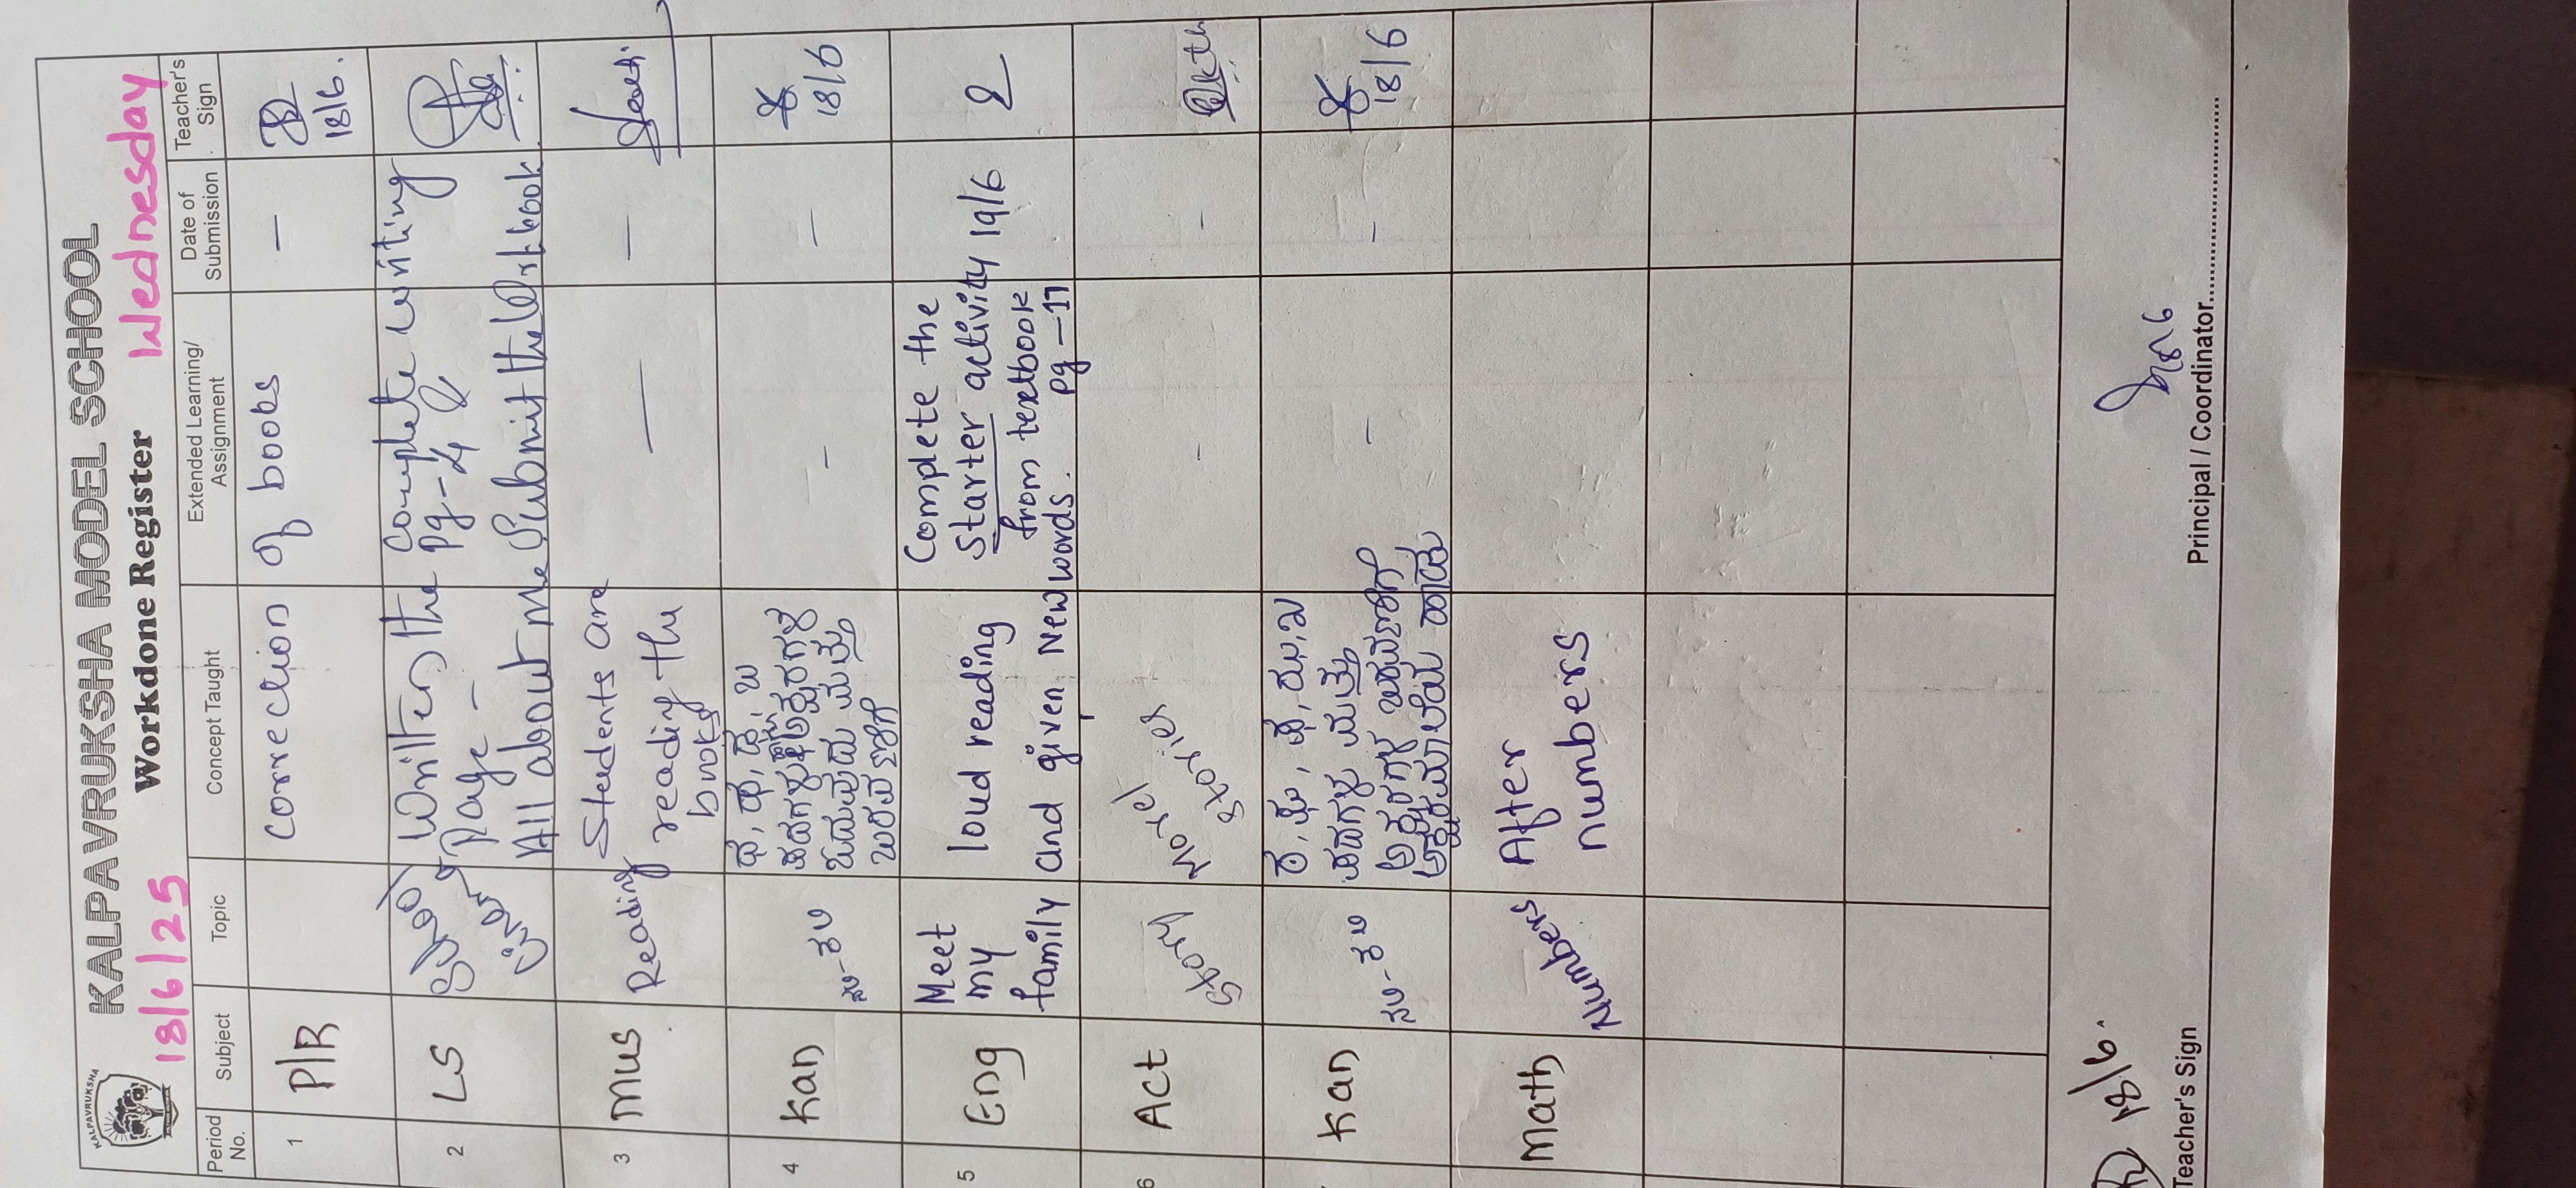 KALPAVRUKSHA
KALPAVRUKSHA MODEL SCHOOL
18/6/25 Workdone Register Wednesday
Period No. Subject Topic Concept Taught Extended Learning/ Assignment Date of Submission Teacher's Sign
1 P/R correction of books — 18/6.
2 LS Written the Complete writing
page - pg-4 &
All about me Submit the textbook
3 Mus Reading Students are — —
reading the
books
4 Kan ಸ-ಕ - — 18/6
ಪದಗಳ
ಓದುವುದು ಮತ್ತು
ಬರವಣಿಗೆ
5 Eng Meet my family loud reading and given New words. Complete the
Starter activity 19/6
from textbook
pg-17
6 Act Story Moral stories - -
Kan - - 18/6
ಪದಗಳ ಮತ್ತು
ಅಕ್ಷರಗಳ ಬರವಣಿಗೆ
ಅಕ್ಷರಮಾಲೆಯ ಹಾಡು
Math Numbers After numbers
18/6.
Teacher's Sign Principal / Coordinator